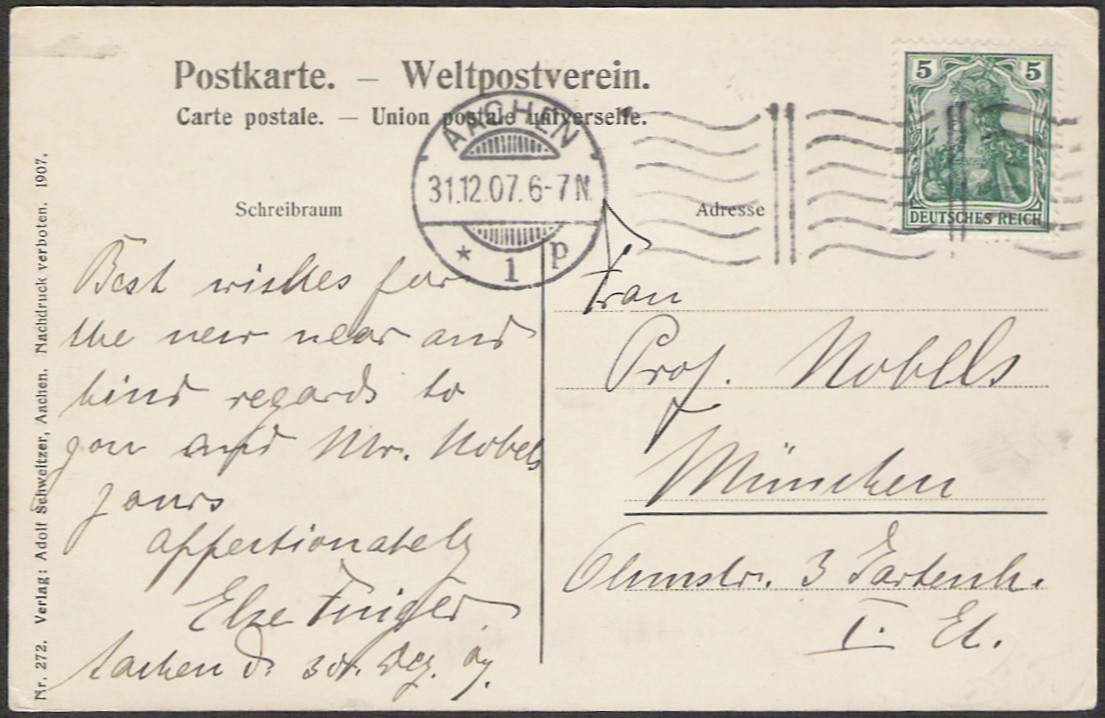 Postkarte. — Weltpostverein.
Carte postale. — Union postale universelle.
5 5
DEUTSCHES REICH
AACHEN
31.12.07.6-7 N.
* 1 p
Schreibraum
Adresse
Best wishes for
the new near and
kind regards to
you and Mr. Nobels
yours
affectionately
Else Finger
Aachen d. Dez. 07.
Frau
Prof. Nobels
München
3 Gartenh.
I. Et.
Nr. 272. Verlag: Adolf Schweitzer, Aachen. Nachdruck verboten. 1907.